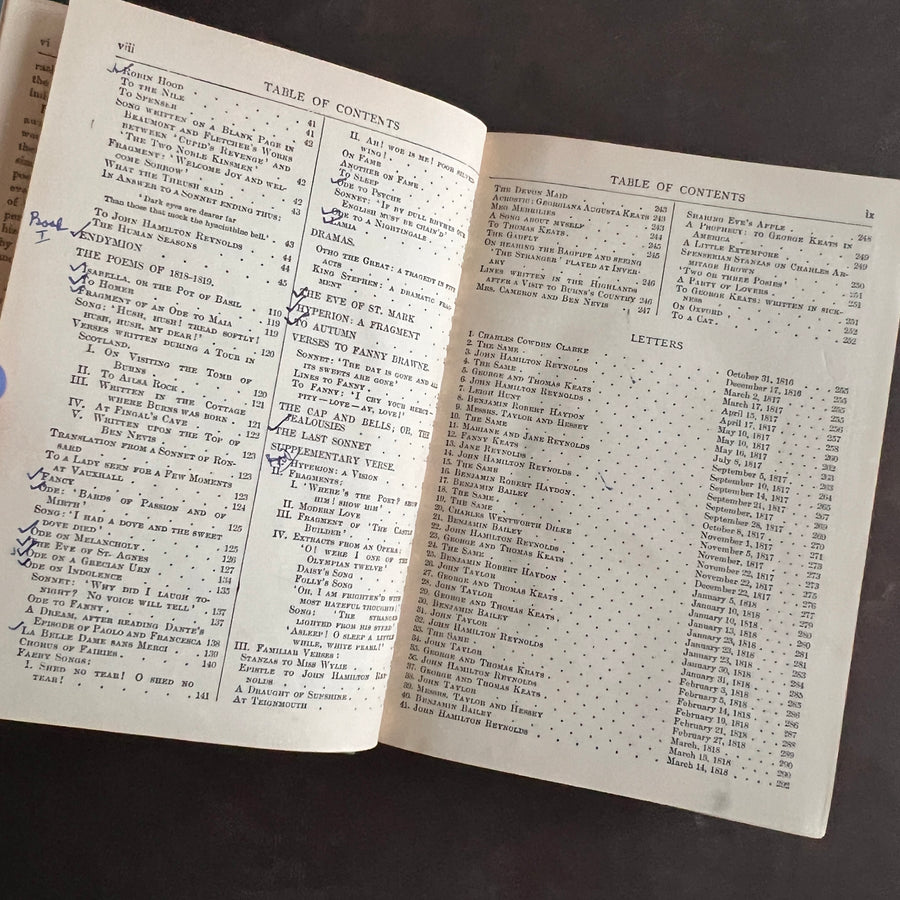 vi
viii
TABLE OF CONTENTS
Robin Hood . . . 41
To the Nile . . . 41
To Spenser . . . 42
Song written on a Blank Page in
Beaumont and Fletcher's Works
between 'Cupid's Revenge' and
'The Two Noble Kinsmen' . . . 42
Fragment: 'Welcome Joy and wel-
come Sorrow' . . . 42
What the Thrush said . . . 43
In Answer to a Sonnet ending thus:
'Dark eyes are dearer far
Than those that mock the hyacinthine bell.'
. . . 43
To John Hamilton Reynolds . . . 44
The Human Seasons . . . 44
Book
I
ENDYMION . . . 45
THE POEMS OF 1818-1819.
Isabella, or the Pot of Basil . . . 110
To Homer . . . 119
Fragment of an Ode to Maia . . . 119
Song: 'Hush, hush! tread softly!
hush, hush, my dear!' . . . 120
Verses written during a Tour in
Scotland.
I. On Visiting the Tomb of
Burns . . . 120
II. To Ailsa Rock . . . 121
III. Written in the Cottage
where Burns was born . . . 121
IV. At Fingal's Cave . . . 122
V. Written upon the Top of
Ben Nevis . . . 123
Translation from a Sonnet of Ron-
sard . . . 123
To a Lady seen for a Few Moments
at Vauxhall . . . 123
Fancy . . . 124
Ode: 'Bards of Passion and of
Mirth' . . . 125
Song: 'I had a dove and the sweet
dove died' . . . 125
Ode on Melancholy . . . 126
The Eve of St. Agnes . . . 127
Ode on a Grecian Urn . . . 134
Ode on Indolence . . . 135
Sonnet: 'Why did I laugh to-
night? No voice will tell' . . . 137
Ode to Fanny . . . 137
A Dream, after reading Dante's
Episode of Paolo and Francesca 138
La Belle Dame sans Merci . . . 139
Chorus of Fairies . . . 140
Faery Songs:
I. Shed no tear! O shed no
tear! . . . 141
II. Ah! woe is me! poor silver-
wing! . . .
On Fame
Another on Fame
To Sleep
Ode to Psyche
Sonnet: 'If by dull rhymes our
English must be chain'd'
Ode to a Nightingale
Lamia
DRAMAS.
Otho the Great: a Tragedy in Five
Acts
King Stephen: a Dramatic Frag-
ment
THE EVE OF ST. MARK
HYPERION: A FRAGMENT
TO AUTUMN
VERSES TO FANNY BRAWNE.
Sonnet: 'The day is gone and all
its sweets are gone'
Lines to Fanny
To Fanny: 'I cry your mercy—
pity—love—ay, love!'
THE CAP AND BELLS; OR, THE
JEALOUSIES
THE LAST SONNET
SUPPLEMENTARY VERSE.
I. Hyperion: a Vision
II. Fragments:
I. 'Where's the Poet? show
him! show him'
II. Modern Love
III. Fragment of 'The Castle
Builder'
IV. Extracts from an Opera:
'O! were I one of the
Olympian twelve'
Daisy's Song
Folly's Song
'Oh, I am frighten'd with
most hateful thoughts!'
Song: 'The stranger
lighted from his steed'
'Asleep! O sleep a little
while, white pearl!'
III. Familiar Verses:
Stanzas to Miss Wylie
Epistle to John Hamilton Rey-
nolds
A Draught of Sunshine
At Teignmouth
TABLE OF CONTENTS
ix
The Devon Maid . . . 243
Acrostic: Georgiana Augusta Keats 243
Meg Merrilies . . . 243
A Song about Myself . . . 244
To Thomas Keats . . . 245
The Gadfly . . . 245
On hearing the Bagpipe and seeing
'The Stranger' played at Inver-
ary . . . 246
Lines written in the Highlands
after a Visit to Burns's Country 246
Mrs. Cameron and Ben Nevis . . . 247
Sharing Eve's Apple . . . 248
A Prophecy: to George Keats in
America . . . 249
A Little Extempore . . . 249
Spenserian Stanzas on Charles Ar-
mitage Brown . . . 250
'Two or three Posies' . . . 251
A Party of Lovers . . . 251
To George Keats: written in sick-
ness . . . 251
On Oxford . . . 252
To a Cat . . . 252
LETTERS
1. Charles Cowden Clarke . . . October 31, 1816 . . . 255
2. The Same . . . December 17, 1816 . . . 255
3. John Hamilton Reynolds . . . March 2, 1817 . . . 255
4. The Same . . . March 17, 1817
5. George and Thomas Keats . . . April 15, 1817
6. John Hamilton Reynolds . . . April 17, 1817
7. Leigh Hunt . . . May 10, 1817
8. Benjamin Robert Haydon . . . May 10, 1817
9. Messrs. Taylor and Hessey . . . May 16, 1817
10. The Same . . . July 8, 1817
11. Mariane and Jane Reynolds . . . September 5, 1817
12. Fanny Keats . . . September 10, 1817
13. Jane Reynolds . . . September 14, 1817
14. John Hamilton Reynolds . . . September 21, 1817
15. The Same
16. Benjamin Robert Haydon . . . September 28, 1817
17. Benjamin Bailey . . . October 8, 1817
18. The Same . . . November 1, 1817
19. The Same . . . November 5, 1817
20. Charles Wentworth Dilke . . . November, 1817
21. Benjamin Bailey . . . November 22, 1817
22. John Hamilton Reynolds . . . November 22, 1817
23. George and Thomas Keats . . . December 22, 1817
24. The Same . . . January 5, 1818
25. Benjamin Robert Haydon . . . January 10, 1818
26. John Taylor . . . January 10, 1818
27. George and Thomas Keats . . . January 13, 1818
28. John Taylor . . . January 23, 1818
29. George and Thomas Keats . . . January 23, 1818
30. Benjamin Bailey . . . January 23, 1818
31. John Taylor . . . January 30, 1818
32. John Hamilton Reynolds . . . January 31, 1818
33. The Same . . . February 3, 1818
34. John Taylor . . . February 5, 1818
35. George and Thomas Keats . . . February 14, 1818
36. John Hamilton Reynolds . . . February 19, 1818
37. George and Thomas Keats . . . February 21, 1818
38. John Taylor . . . February 27, 1818
39. Messrs. Taylor and Hessey . . . March, 1818 . . . 290
40. Benjamin Bailey . . . March 13, 1818 . . . 290
41. John Hamilton Reynolds . . . March 14, 1818 . . . 292